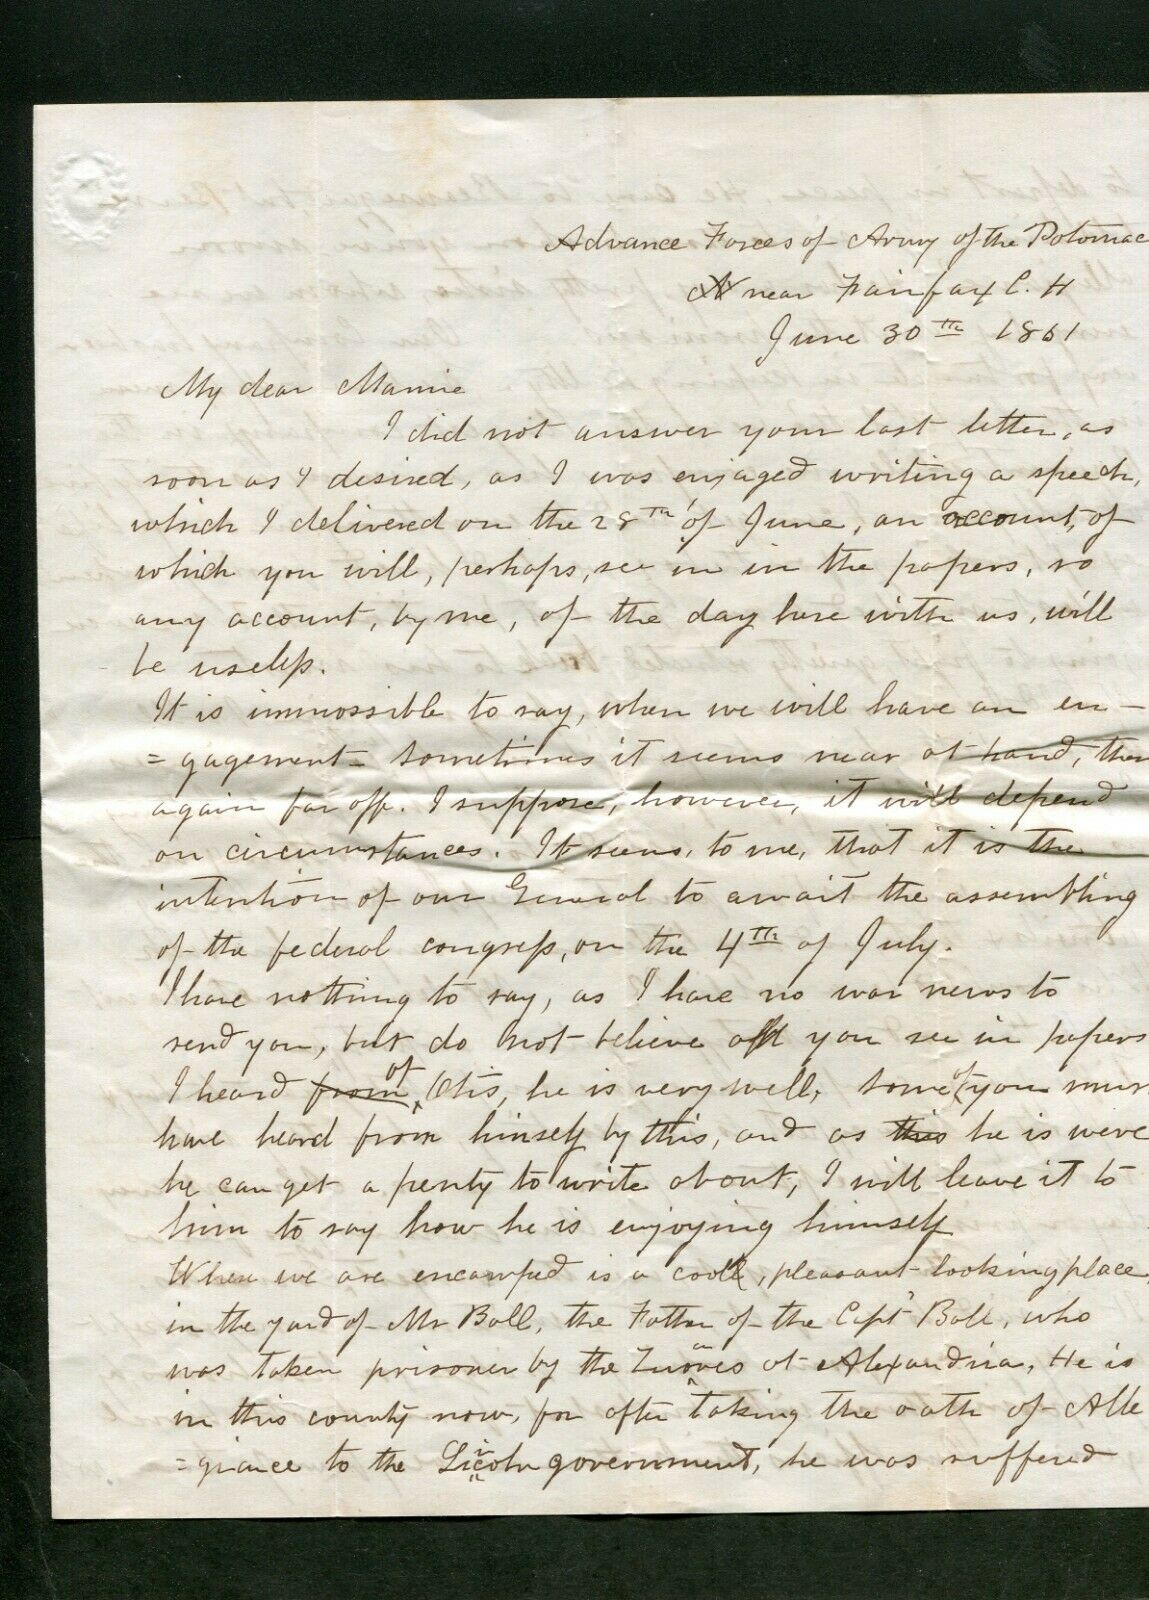 Advance Forces of Army of the Potomac
near Fairfax C. H
June 30th 1861
My dear Mamie
I did not answer your last letter, as
soon as I desired, as I was engaged writing a speech,
which I delivered on the 28th of June, an account, of
which you will, perhaps, see in in the papers, so
any account, by me, of the day here with us, will
be useless.
It is immossible to say, when we will have an en-
=gagement - sometimes it seems near at hand, then
again far off. I suppose, however, it will depend
on circumstances. It seems, to me, that it is the
intention of our General to await the assembling
of the federal congress, on the 4th of July.
I have nothing to say, as I have no war news to
send you, but do not believe all you see in papers
I heard from of Otis, he is very well, some of you
have heard from himself by this, and as this he is
he can get a penty to write about, I will leave it to
him to say how he is enjoying himself
Where we are encamped is a cool, pleasant looking place,
in the yard of Mr Ball, the Father of the Capt Ball, who
was taken prisoner by the at Alexandria, He is
in this county now, for after taking the oath of Alle
=giance to the Lincoln government, he was suffered